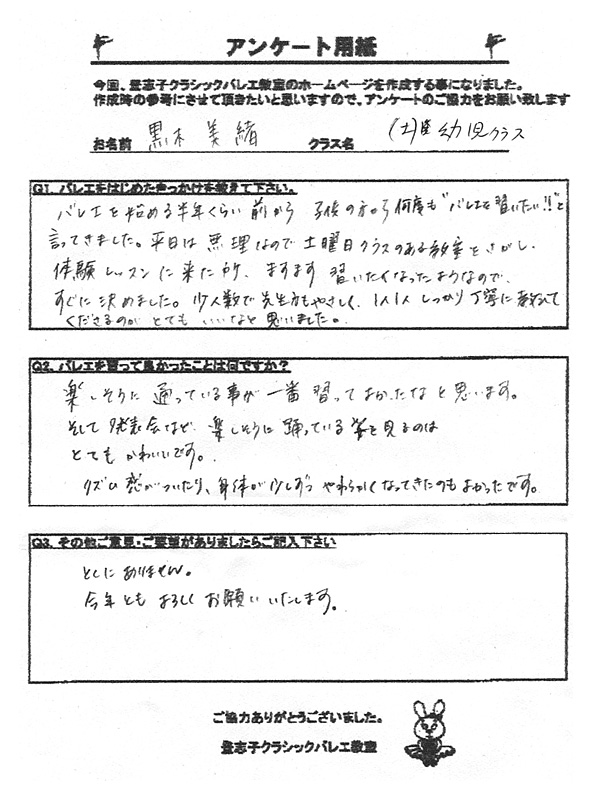 アンケート用紙
今回、登志子クラシックバレエ教室のホームページを作成する事になりました。
作成時の参考にさせて頂きたいと思いますので、アンケートのご協力をお願い致します
お名前 黒木 美緒 クラス名 (土)曜 幼児クラス
Q1. バレエをはじめたきっかけを教えて下さい。
バレエを始める半年くらい前から 子供の方から何度も"バレエを習いたい!!"と
言ってきました。平日は無理なので土曜日クラスのある教室をさがし、
体験レッスンに来た所、ますます習いたくなったようなので、
すぐに決めました。少人数で先生方もやさしく、1人1人しっかり丁寧に教えて
くださるのがとてもいいなと思いました。
Q2. バレエを習って良かったことは何ですか？
楽しそうに通っている事が一番習ってよかったなと思います。
そして発表会など、楽しそうに踊っている姿を見るのは
とてもかわいいです。
リズム感がついたり、身体が少しずつやわらかくなってきたのもよかったです。
Q3. その他ご意見・ご要望がありましたらご記入下さい
とくにありません。
今年もよろしくお願いいたします。
ご協力ありがとうございました。
登志子クラシックバレエ教室